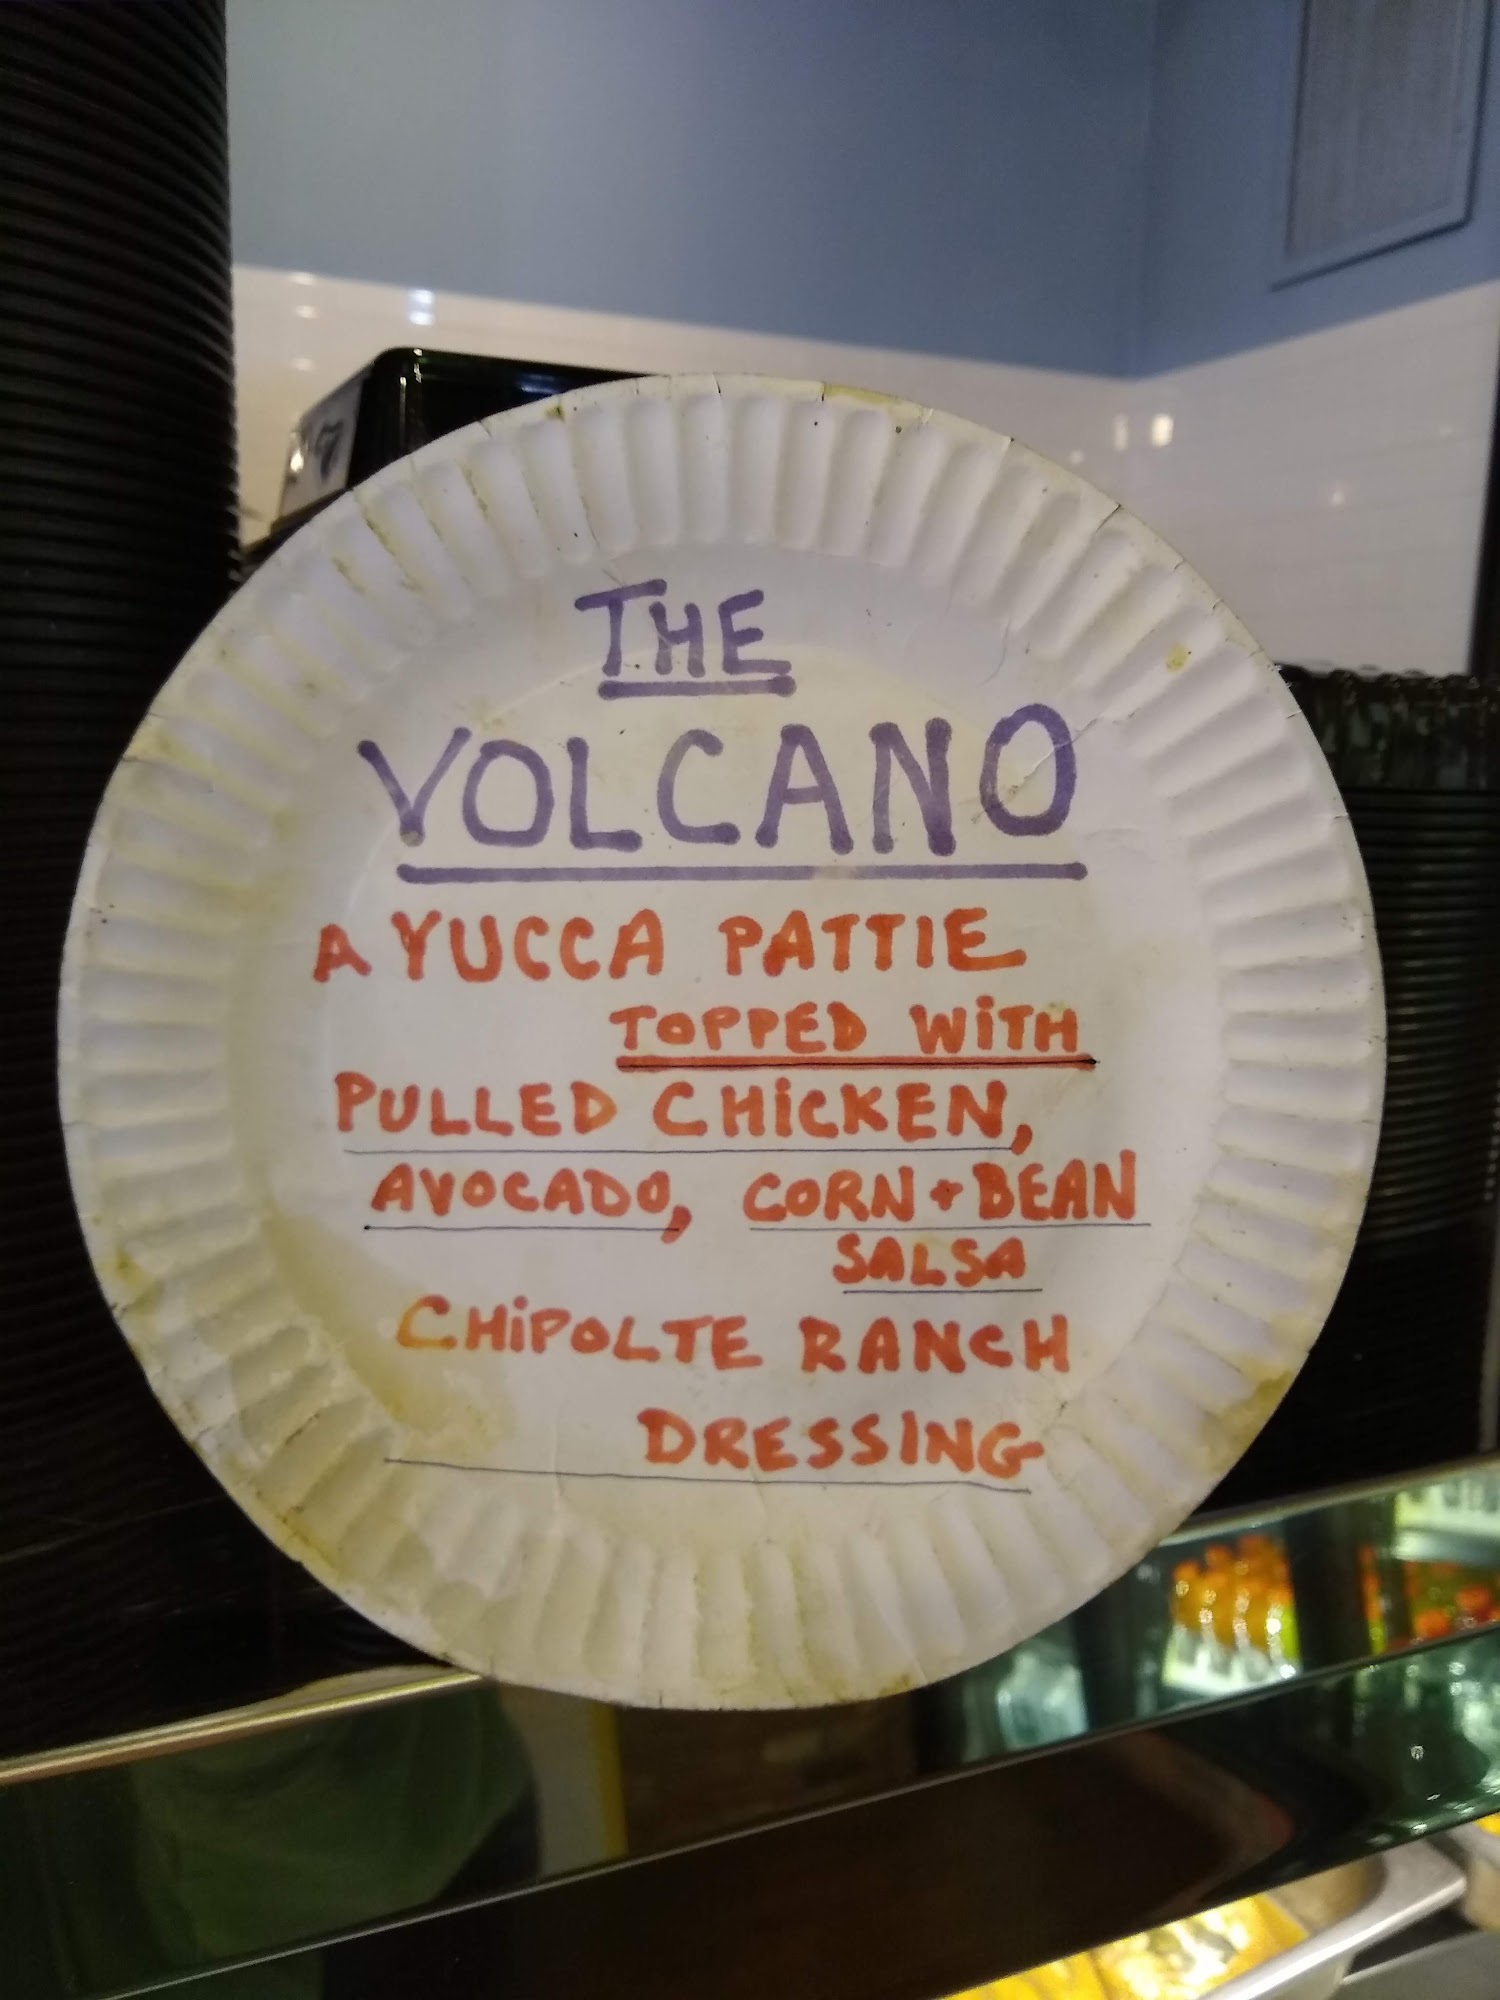 THE
VOLCANO
A YUCCA PATTIE
TOPPED WITH
PULLED CHICKEN,
AVOCADO, CORN + BEAN
SALSA
CHIPOLTE RANCH
DRESSING